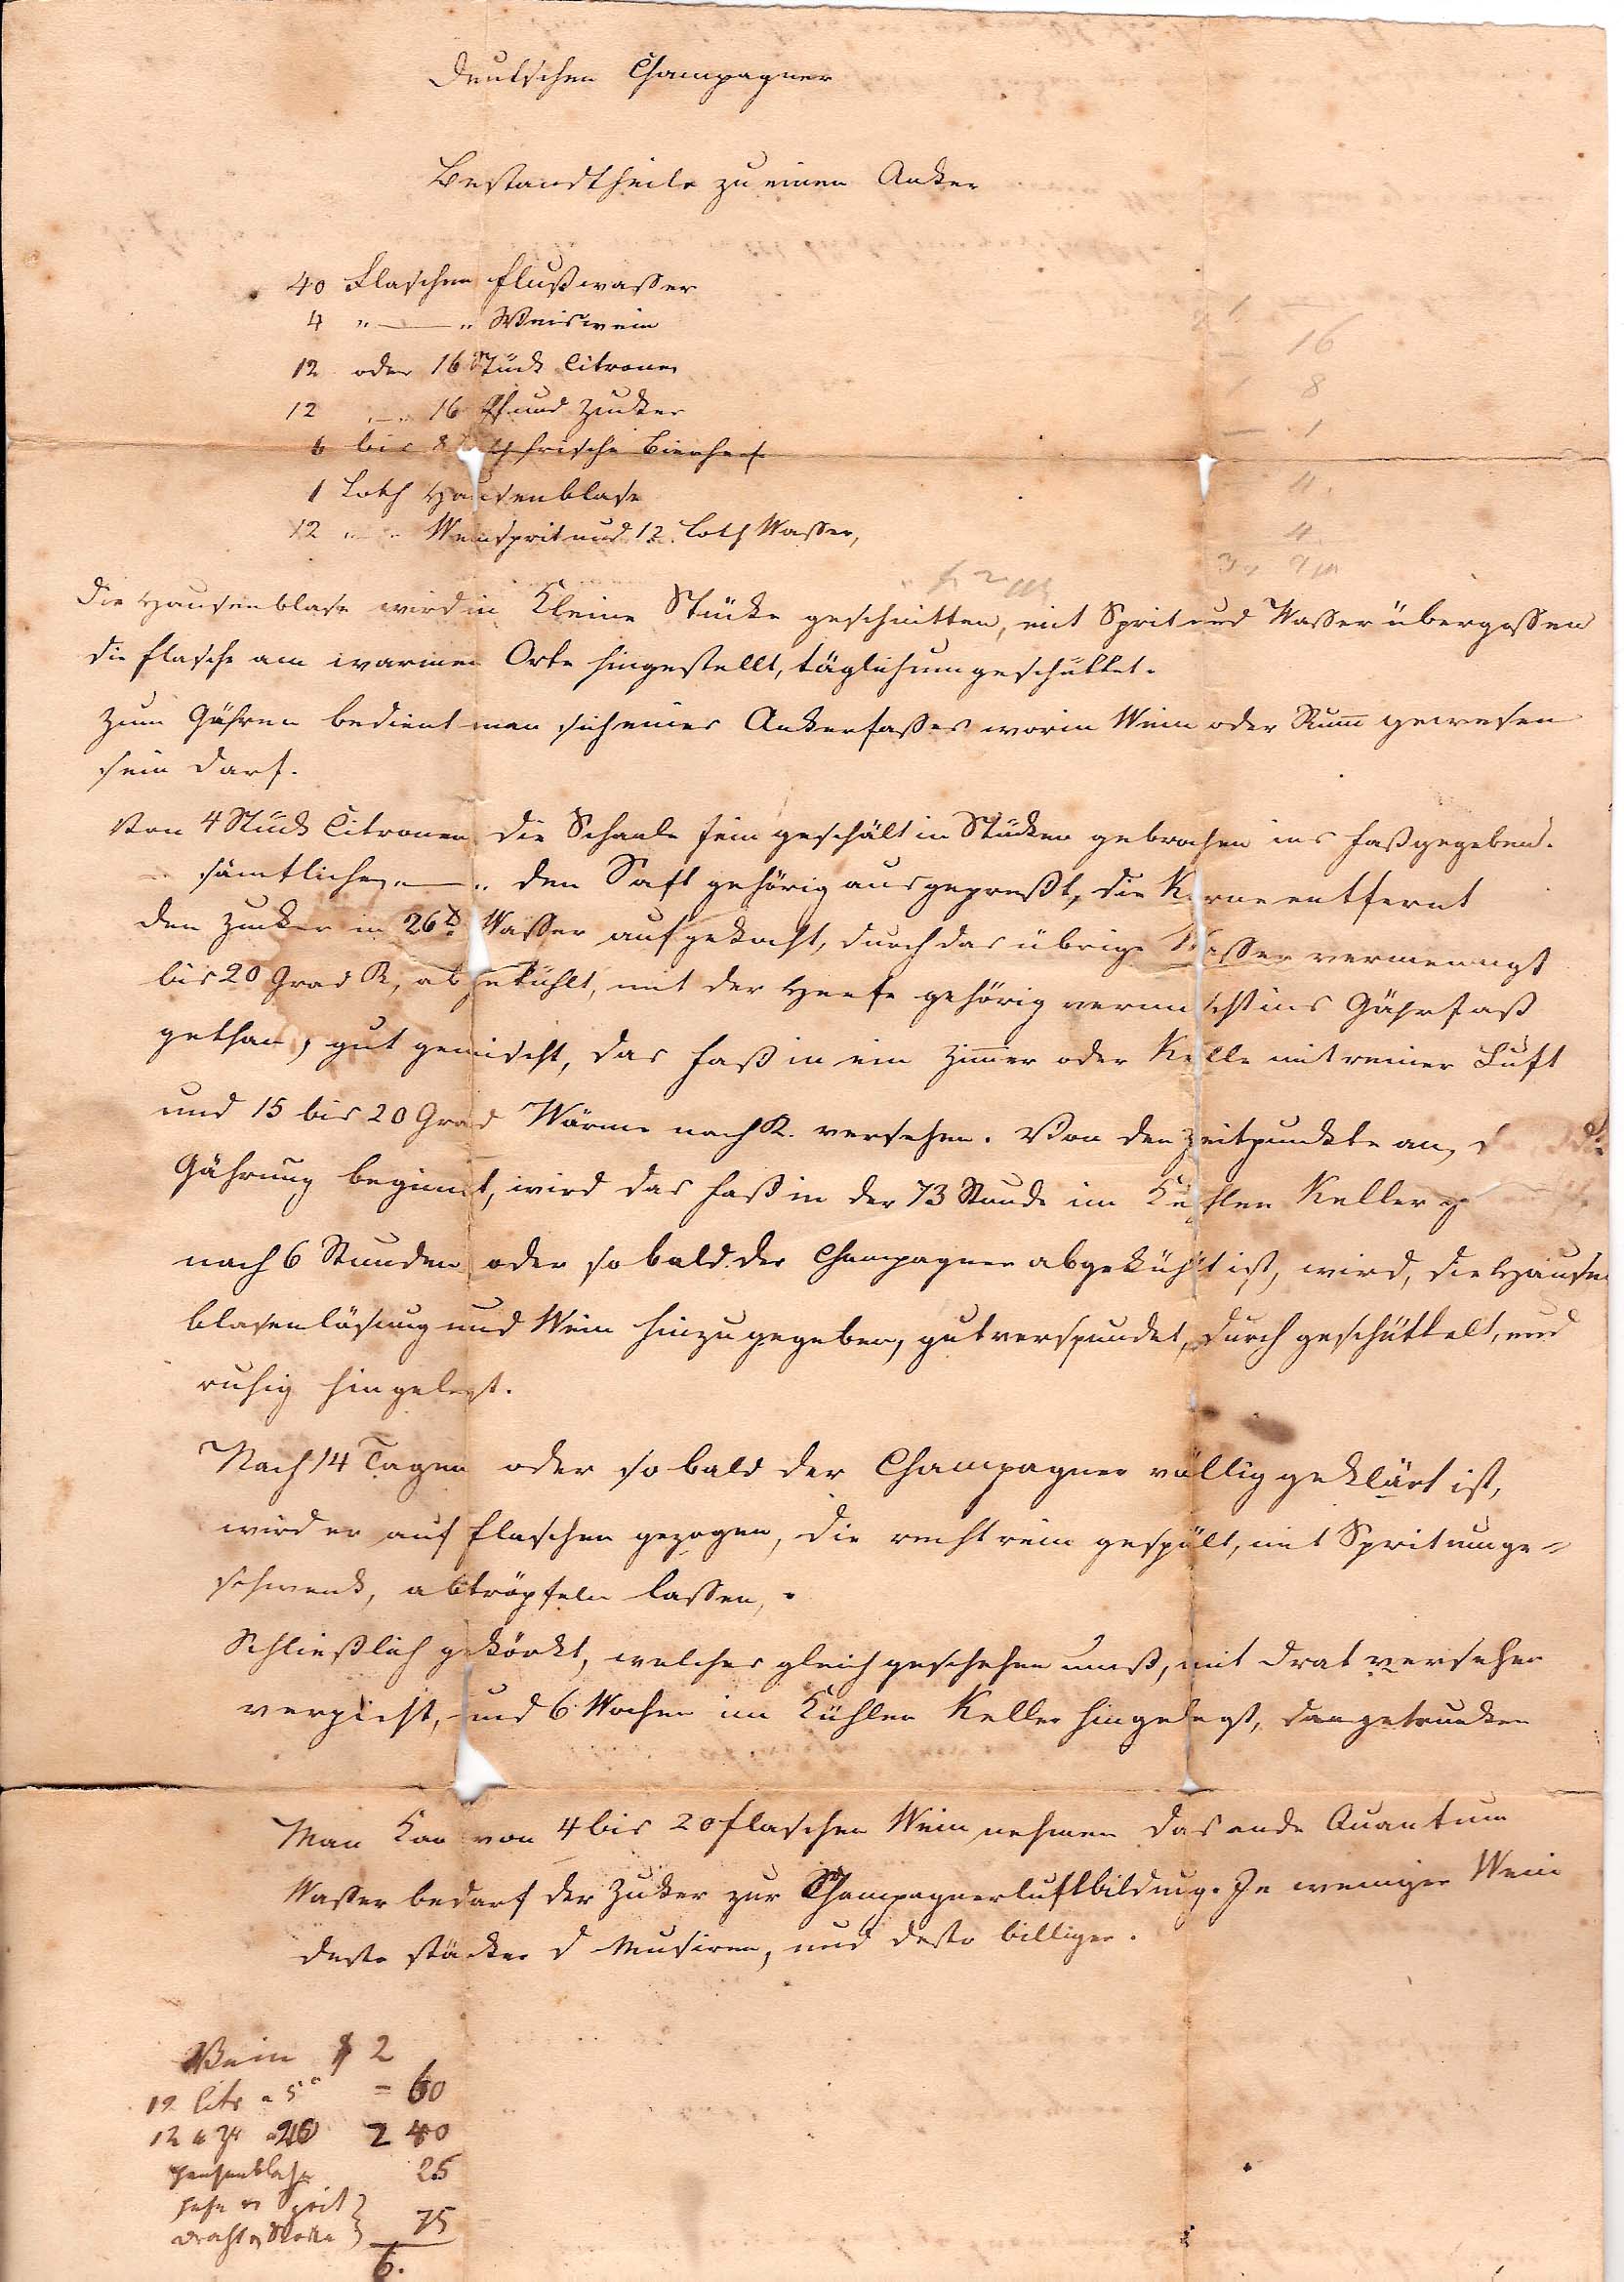 Deutschen Champagner
Bestandtheile zu einen Anker
40 Flaschen Flußwasser
4 " — " Weiswein
12 oder 16 Stück Citronen
12 — " 16 Pfund Zucker
6 bis 8 frische Bierhef
1 Loth Hausenblase
12 " — " Weinsprit und 12 Loth Wasser,
Die Hausenblase wird in Kleine Stücke geschnitten, mit Sprit und Wasser übergossen
die Flasche am warmen Orte hingestellt, täglich umgeschüttet.
Zum Gähren bedient man sich eines Ankerfasses worin Wein oder Rum̅ gewesen
sein darf.
Von 4 Stück Citronen die Schaale fein geschält in Stücken gebrochen ins Faß gegeben.
" sämtlichen " — " den Saft gehörig ausgepreßt, die Kerne entfernt
den Zucker in 26 Wasser aufgekocht, durch das übrige Wasser vermenngt
bis 20 Grad R, abgekühlt, mit der Heefe gehörig vermischt ins Gährfaß
gethan, gut gemischt, das Faß in ein Zim̅er oder Kelle mit reiner Luft
und 15 bis 20 Grad Wärme nach R. versehen. Von den Zeitpunckte an,
Gährung beginnt, wird das Faß in der 73 Stunde im Kühlen Keller
nach 6 Stunden oder so bald der Champagner abgekühlt ist, wird, die Hausen
blasenlösung und Wein hinzugegeben, gut verspundet, durch geschüttelt, und
ruhig hingelegt.
Nach 14 Tagen oder so bald der Champagner völlig geklärt ist,
wird er auf Flaschen gezogen, die recht rein gespült, mit Sprit umge=
schwenk, abtröpfeln lassen, .
Schließlich gekörkt, welches gleich geschehen muß, mit Drat versehen
verpicht, und 6 Wochen im Kühlen Keller hingelegt, dan getruncken
Man Kan von 4 bis 20 Flaschen Wein nehmen das ande Quantum
Wasser bedarf der Zuker zur Champagnerluftbildung. Je weniger Wein
desto stäcker d Musiren, und desto billiger.
16
8
1
4.
4
Wein $ 2
12 Citr a 5 c = 60
12 a 20 2 40
Hausenblase 25
Hefe u Sprit }
Draht u Korke } 75
6.